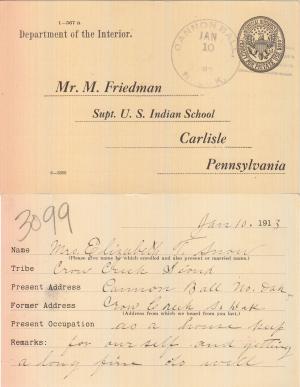 1—567 a
Department of the Interior.
CANNON BALL
JAN
10
N. DAK.
Mr. M. Friedman
Supt. U. S. Indian School
Carlisle
Pennsylvania
3099
Jan 10. 1913
Name Mrs. Elizabeth T. Snow
(Please give name by which enrolled and also present or married name.)
Tribe Crow Creek Sioux
Present Address Cannon Ball No. Dak
Former Address Crow Creek S. Dak
(Address from which we heard from you last.)
Present Occupation as a house keep
Remarks: for our self and getting
a long fine do well